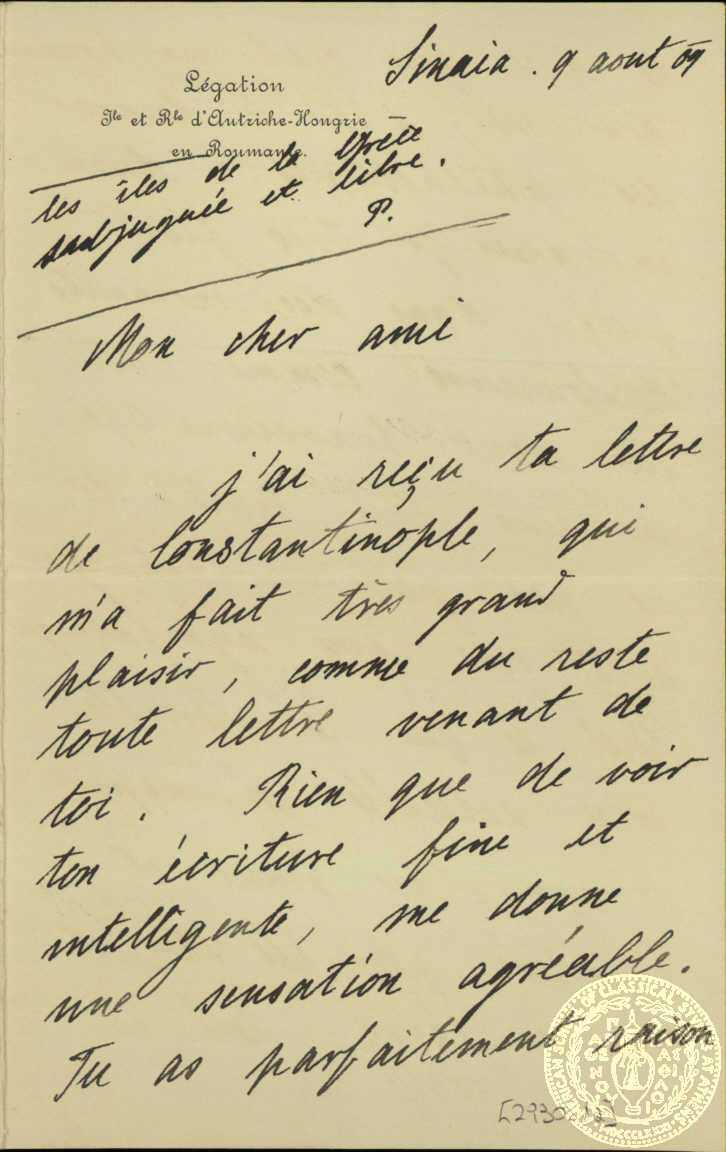 Légation
Ile et Rle d'Autriche-Hongrie
en Roumanie.
Sinaia. 9 aout 09
les îles de la Grèce
subjuguée et libre.
P.
Mon cher ami
j'ai reçu ta lettre
de Constantinople, qui
m'a fait très grand
plaisir, comme du reste
toute lettre venant de
toi. Rien que de voir
ton écriture fine et
intelligente, me donne
une sensation agréable.
Tu as parfaitement raison